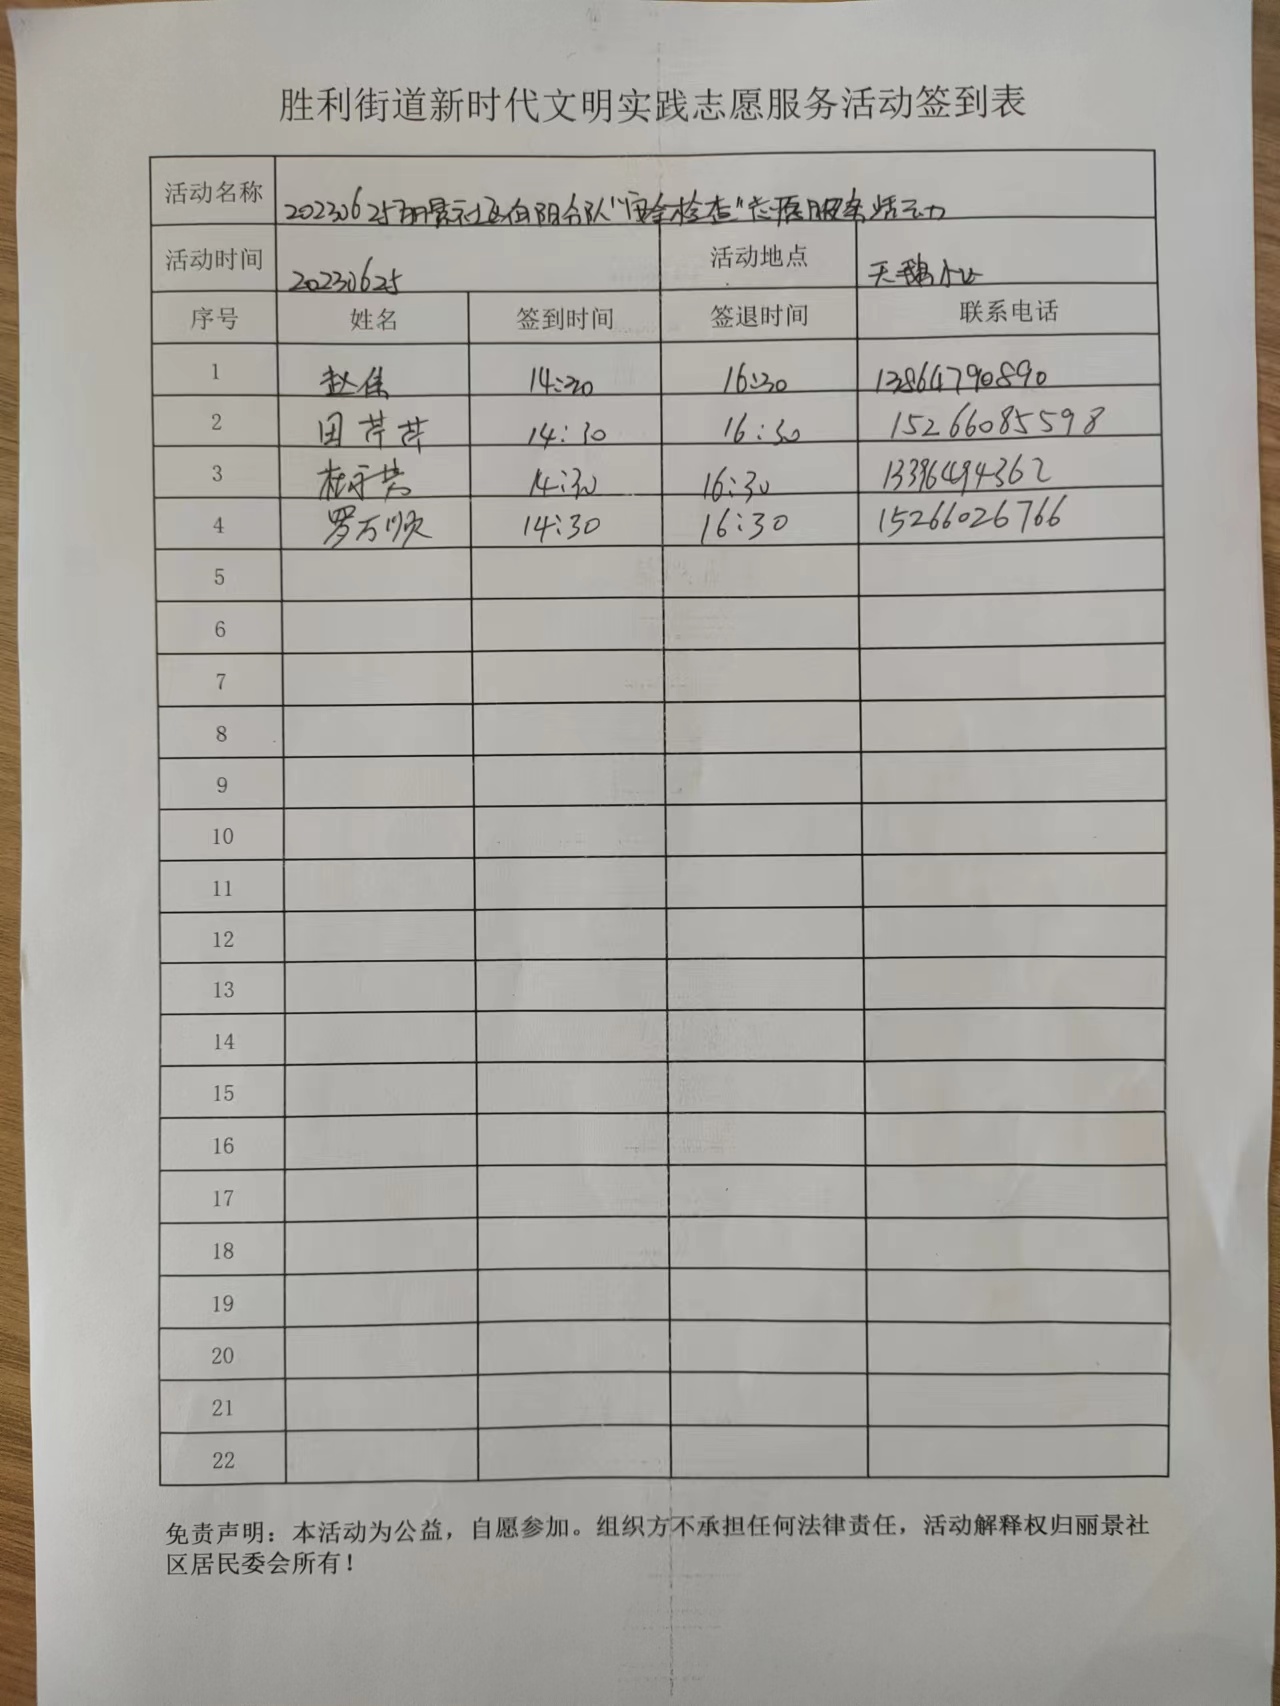 胜利街道新时代文明实践志愿服务活动签到表
活动名称 20230625丽景社区向阳分队"安全检查"志愿服务活动
活动时间 20230625 活动地点 天鹅小区
序号 姓名 签到时间 签退时间 联系电话
1 赵佳 14:30 16:30 13864790890
2 田芹芹 14:30 16:30 15266085598
3 14:30 16:30 13396494362
4 罗万顺 14:30 16:30 15266026766
5
6
7
8
9
10
11
12
13
14
15
16
17
18
19
20
21
22
免责声明：本活动为公益，自愿参加。组织方不承担任何法律责任，活动解释权归丽景社
区居民委会所有！